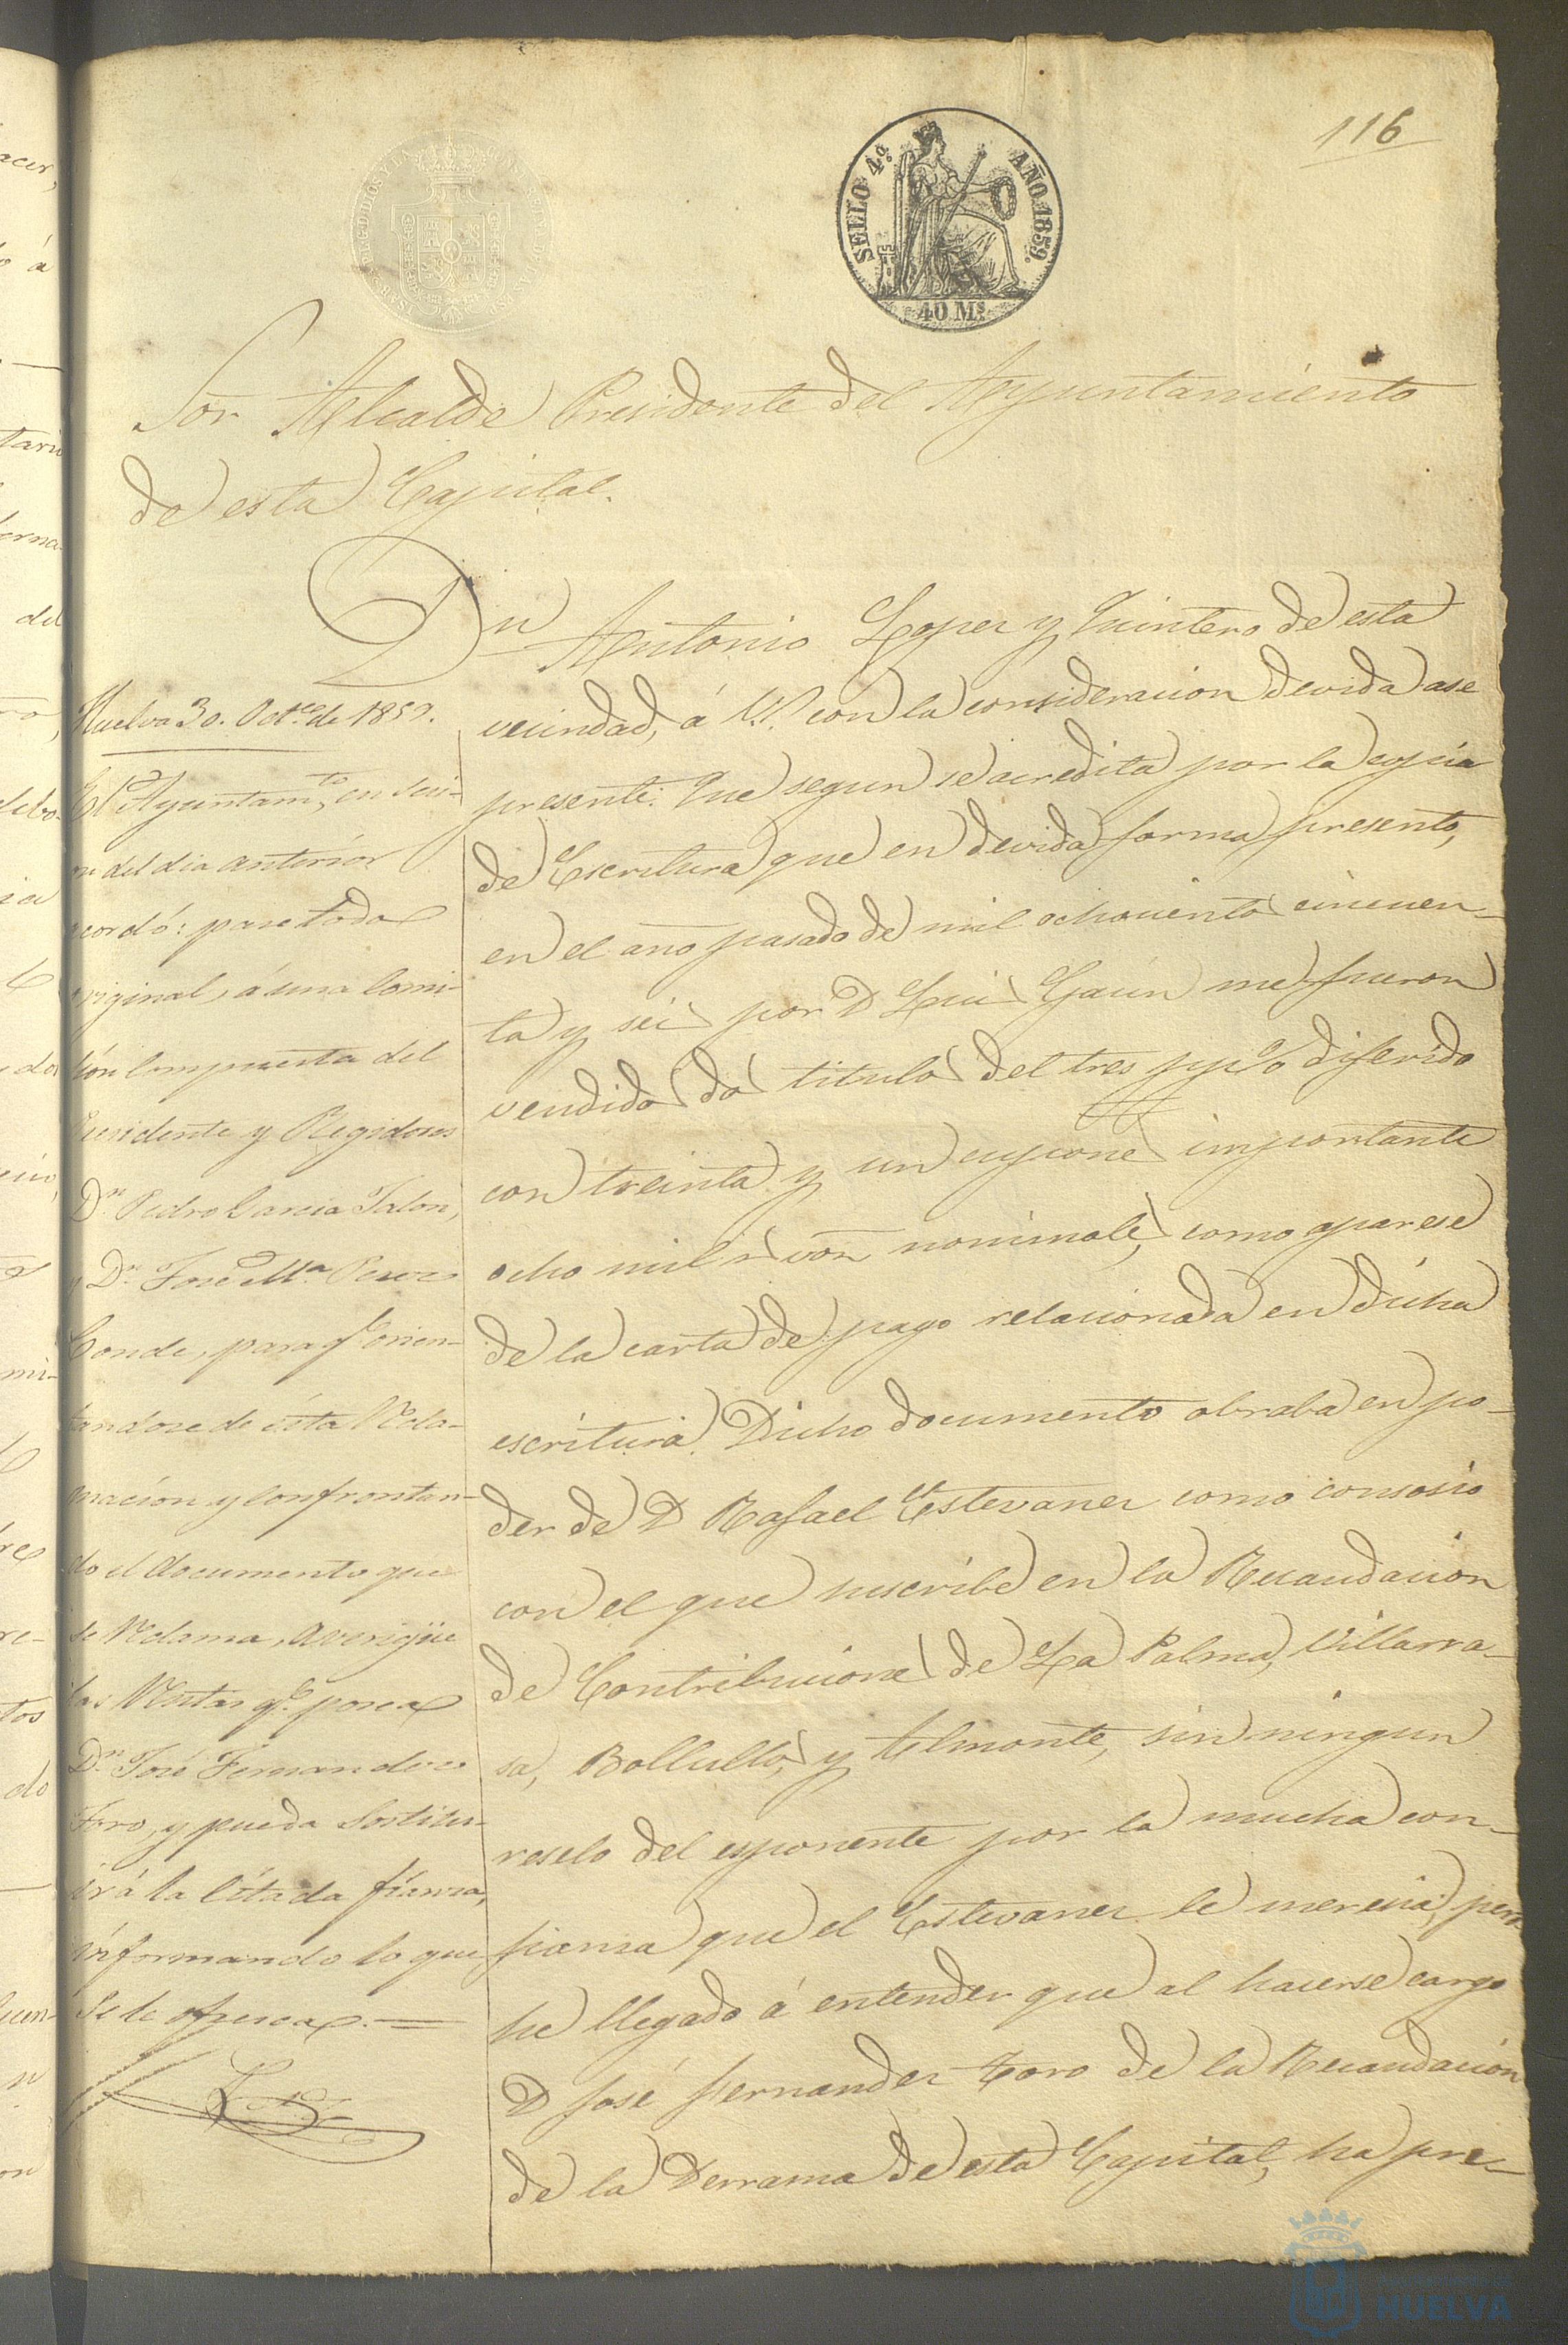 116
SELLO 4º AÑO 1859.
40 Ms
Sor Alcalde Presidente del Ayuntamiento
de esta Capital.
Dn Antonio Lopez y Quintero de esta
vecindad, á V.S. con la consideracion devida ase
presente: Que segun se acredita por la copia
de Escritura que en devida forma presento,
en el año pasado de mil ochocientos cincuen-
ta y seis por D Luis Gaün me fueron
vendidos dos titulos del tres pp% diferido
con treinta y un cupones importantes
ocho mil rs von nominales, como aparese
de la carta de pago relacionada en dicha
escritura. Dicho documento obraba en po-
der de D Rafael Estevanez como consosio
con el que suscribe en la Recaudacion
de Contribuciones de La Palma, Villarra-
sa, Bollullos, y Almonte, sin ningun
reselo del esponente por la mucha con-
fianza que el Estevanez le meresia; pero
he llegado á entender que al hacerse cargo
D José Fernandez Toro de la Recaudacion
de la Derrama de esta Capital, ha pre-
Huelva 30. Octe. de 1859.
El Ayuntamto, en sesi-
on del dia anterior
acordó: pase todo
original, á una Comi-
sión Compuesta del
Presidente y Regidores
Dn. Pedro Garcia Jalon,
y Dn. José Mª Perez
Conde, para q. orien-
tandose de ésta Recla-
macion y Confrontan-
do el documento que
se Reclama, averigüe
las Rentas qe. posea
Dn. José Fernandez
Toro, y pueda Sostitu-
ir á la Citada fianza,
informando lo que
se le ofrezca. =
HUELVA